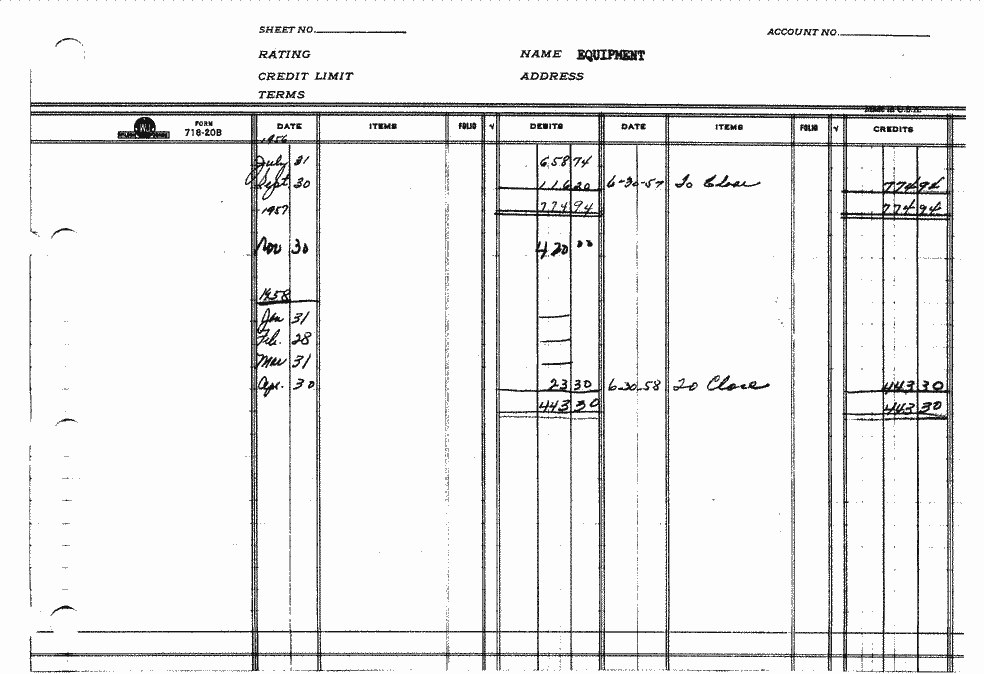 SHEET NO.
ACCOUNT NO.
RATING
NAME EQUIPMENT
CREDIT LIMIT
ADDRESS
TERMS
MADE IN U.S.A.
FORM
718-20B
DATE ITEMS FOLIO √ DEBITS DATE ITEMS FOLIO √ CREDITS
1956
July 31 658 74
Sept 30 116 20 6-30-57 To Close 774 94
1957 774 94 774 94
Nov 30 420 00
1958
Jan 31 —
Feb. 28 —
Mar 31 —
Apr. 30 23 30 6-30-58 To Close 443 30
443 30 443 30